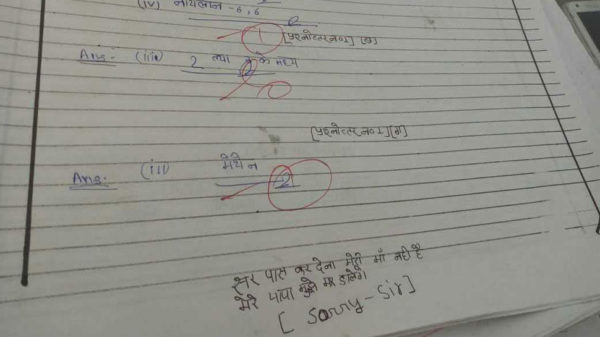 (iv) नायलॉन -6,6
1 [प्रश्नोत्तर नं०1] (ब)
Ans:- (iii) 2 तथा के मध्य
[प्रश्नोत्तर नं०1] (स)
Ans:- (iii) मेथेन
2
सर पास कर देना मेरी माँ नही है
मेरे पापा मुझे मार डालेंगे
[ Sorry - Sir]